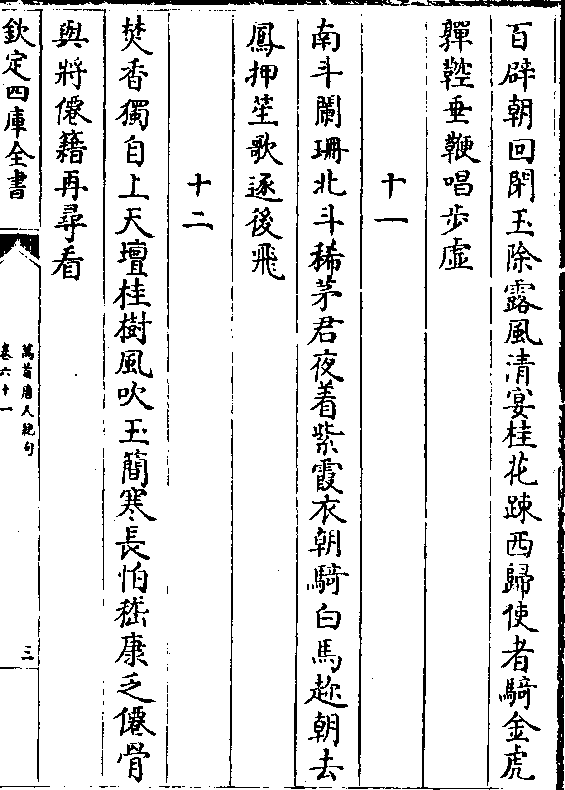 百辟朝回閉玉除露風清宴桂花踈西歸使者騎金虎
嚲鞚垂鞭唱歩虛
十一
南斗闌珊北斗稀茅君夜着紫霞衣朝騎白馬趂朝去
鳳押笙歌逐後飛
十二
焚香獨自上天壇桂樹風吹玉簡寒長怕嵇康乏僊骨
與將僊籍再尋看
欽定四庫全書
萬首唐人絶句
卷六十一
三